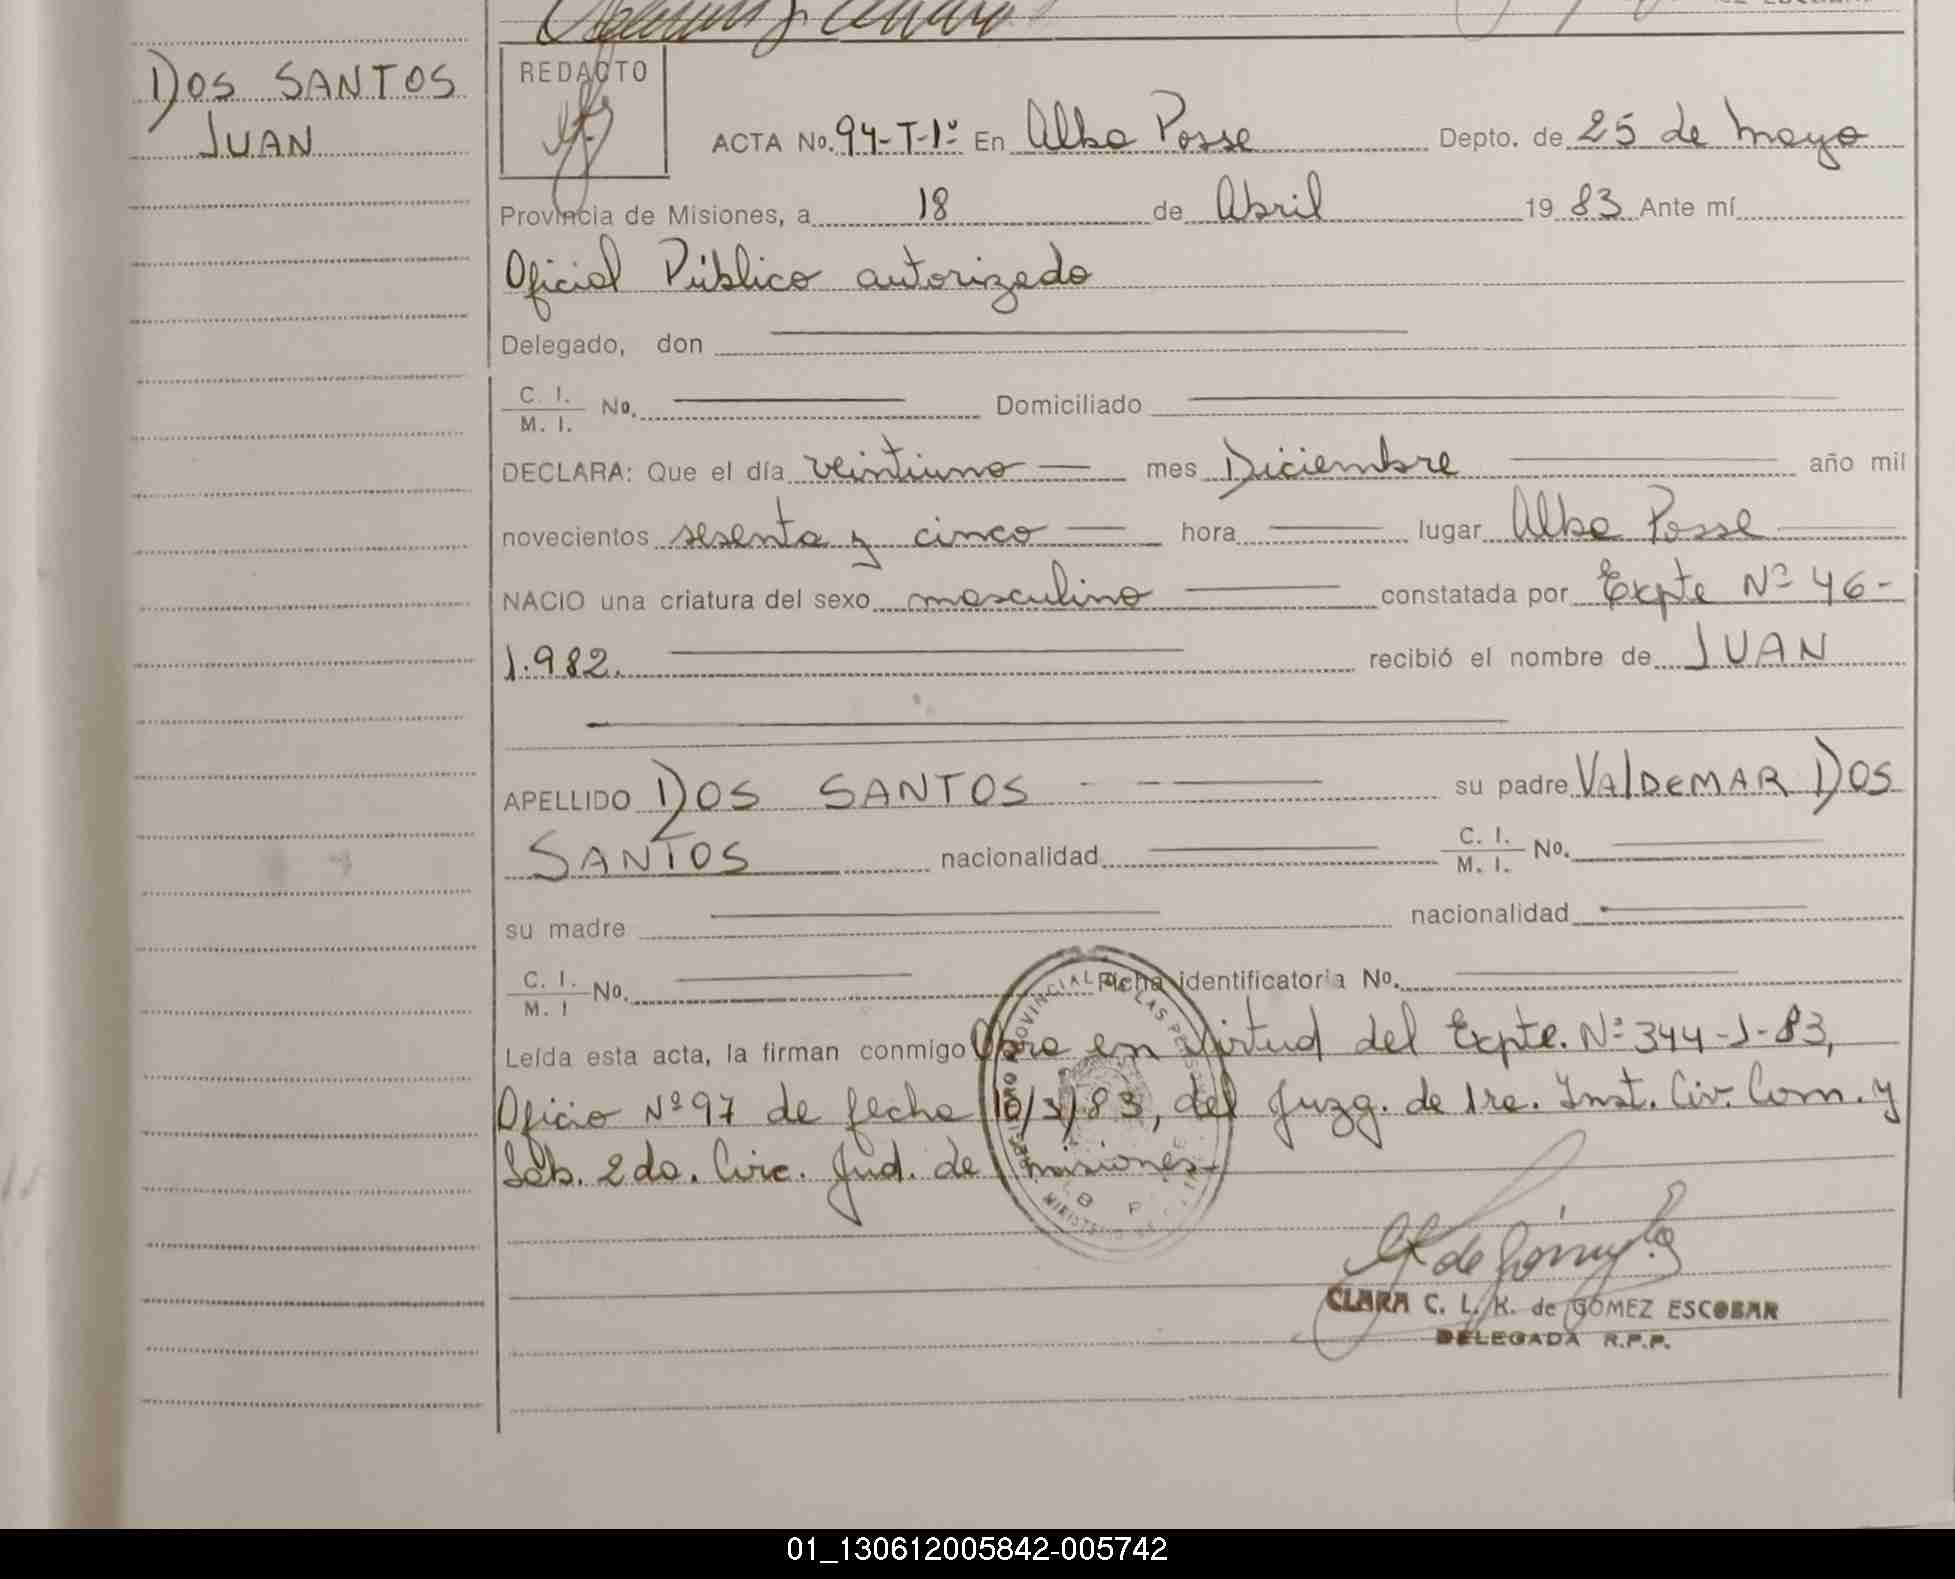 DOS SANTOS
JUAN
REDACTO
ACTA No. 94-T-1º En Alba Posse Depto. de 25 de Mayo
Provincia de Misiones, a 18 de Abril 19 83 Ante mí
Oficial Público autorizado
Delegado, don
C. I. / M. I. No. Domiciliado
DECLARA: Que el día veintiuno mes Diciembre año mil
novecientos sesenta y cinco hora lugar Alba Posse
NACIO una criatura del sexo masculino constatada por Expte Nº 46-
1.982. recibió el nombre de JUAN
APELLIDO DOS SANTOS su padre VALDEMAR DOS
SANTOS nacionalidad C. I. / M. I. No.
su madre nacionalidad
C. I. / M. I No. Ficha identificatoria No.
Leída esta acta, la firman conmigo Obra en virtud del Expte. Nº 344-J-83,
Oficio Nº 97 de fecha 10/3/83, del Juzg. de 1ra. Inst. Civ. Com. y
Lab. 2da. Circ. Jud. de Misiones-
CLARA C. L. K. de GOMEZ ESCOBAR
DELEGADA R.P.P.
01_130612005842-005742